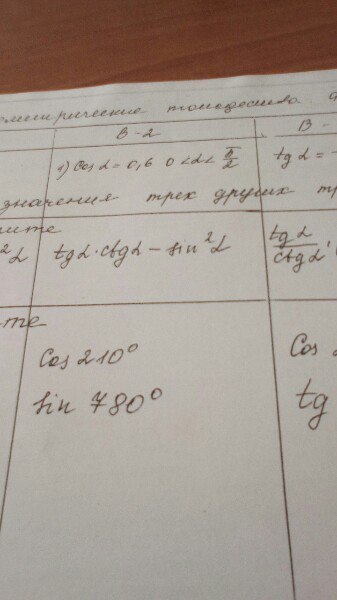 тригонометрические тождества
В-2 В-
1) Cos α = 0,6 0 < α < π/2 tg α = -
значения трех других
²α tg α · ctg α – sin² α tg α / ctg α
Cos 210° Cos
sin 780° tg